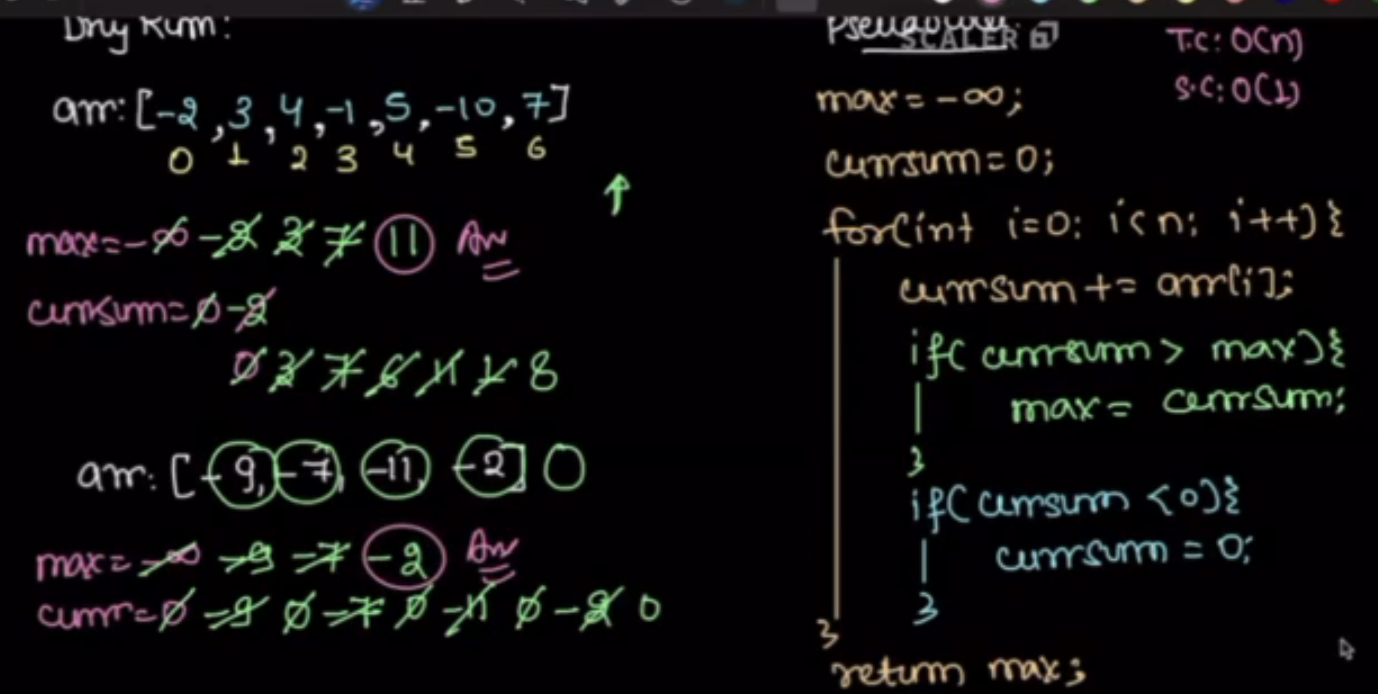 Dry Run:
arr: [-2, 3, 4, -1, 5, -10, 7]
0 1 2 3 4 5 6
max=-∞ -2 3 7 11 Ans
currsum=0 -2
0 3 7 6 11 1 8
arr: [-9, -7, -11, -2] 0
max=-∞ -9 -7 -2 Ans
curr=0 -9 0 -7 0 -11 0 -2 0
SCALER
T.C: O(n)
S.C: O(1)
max = -∞;
currsum = 0;
for(int i=0; i<n; i++){
currsum += arr[i];
if( currsum > max){
max = currsum;
}
if( currsum <0){
currsum = 0;
}
}
return max;